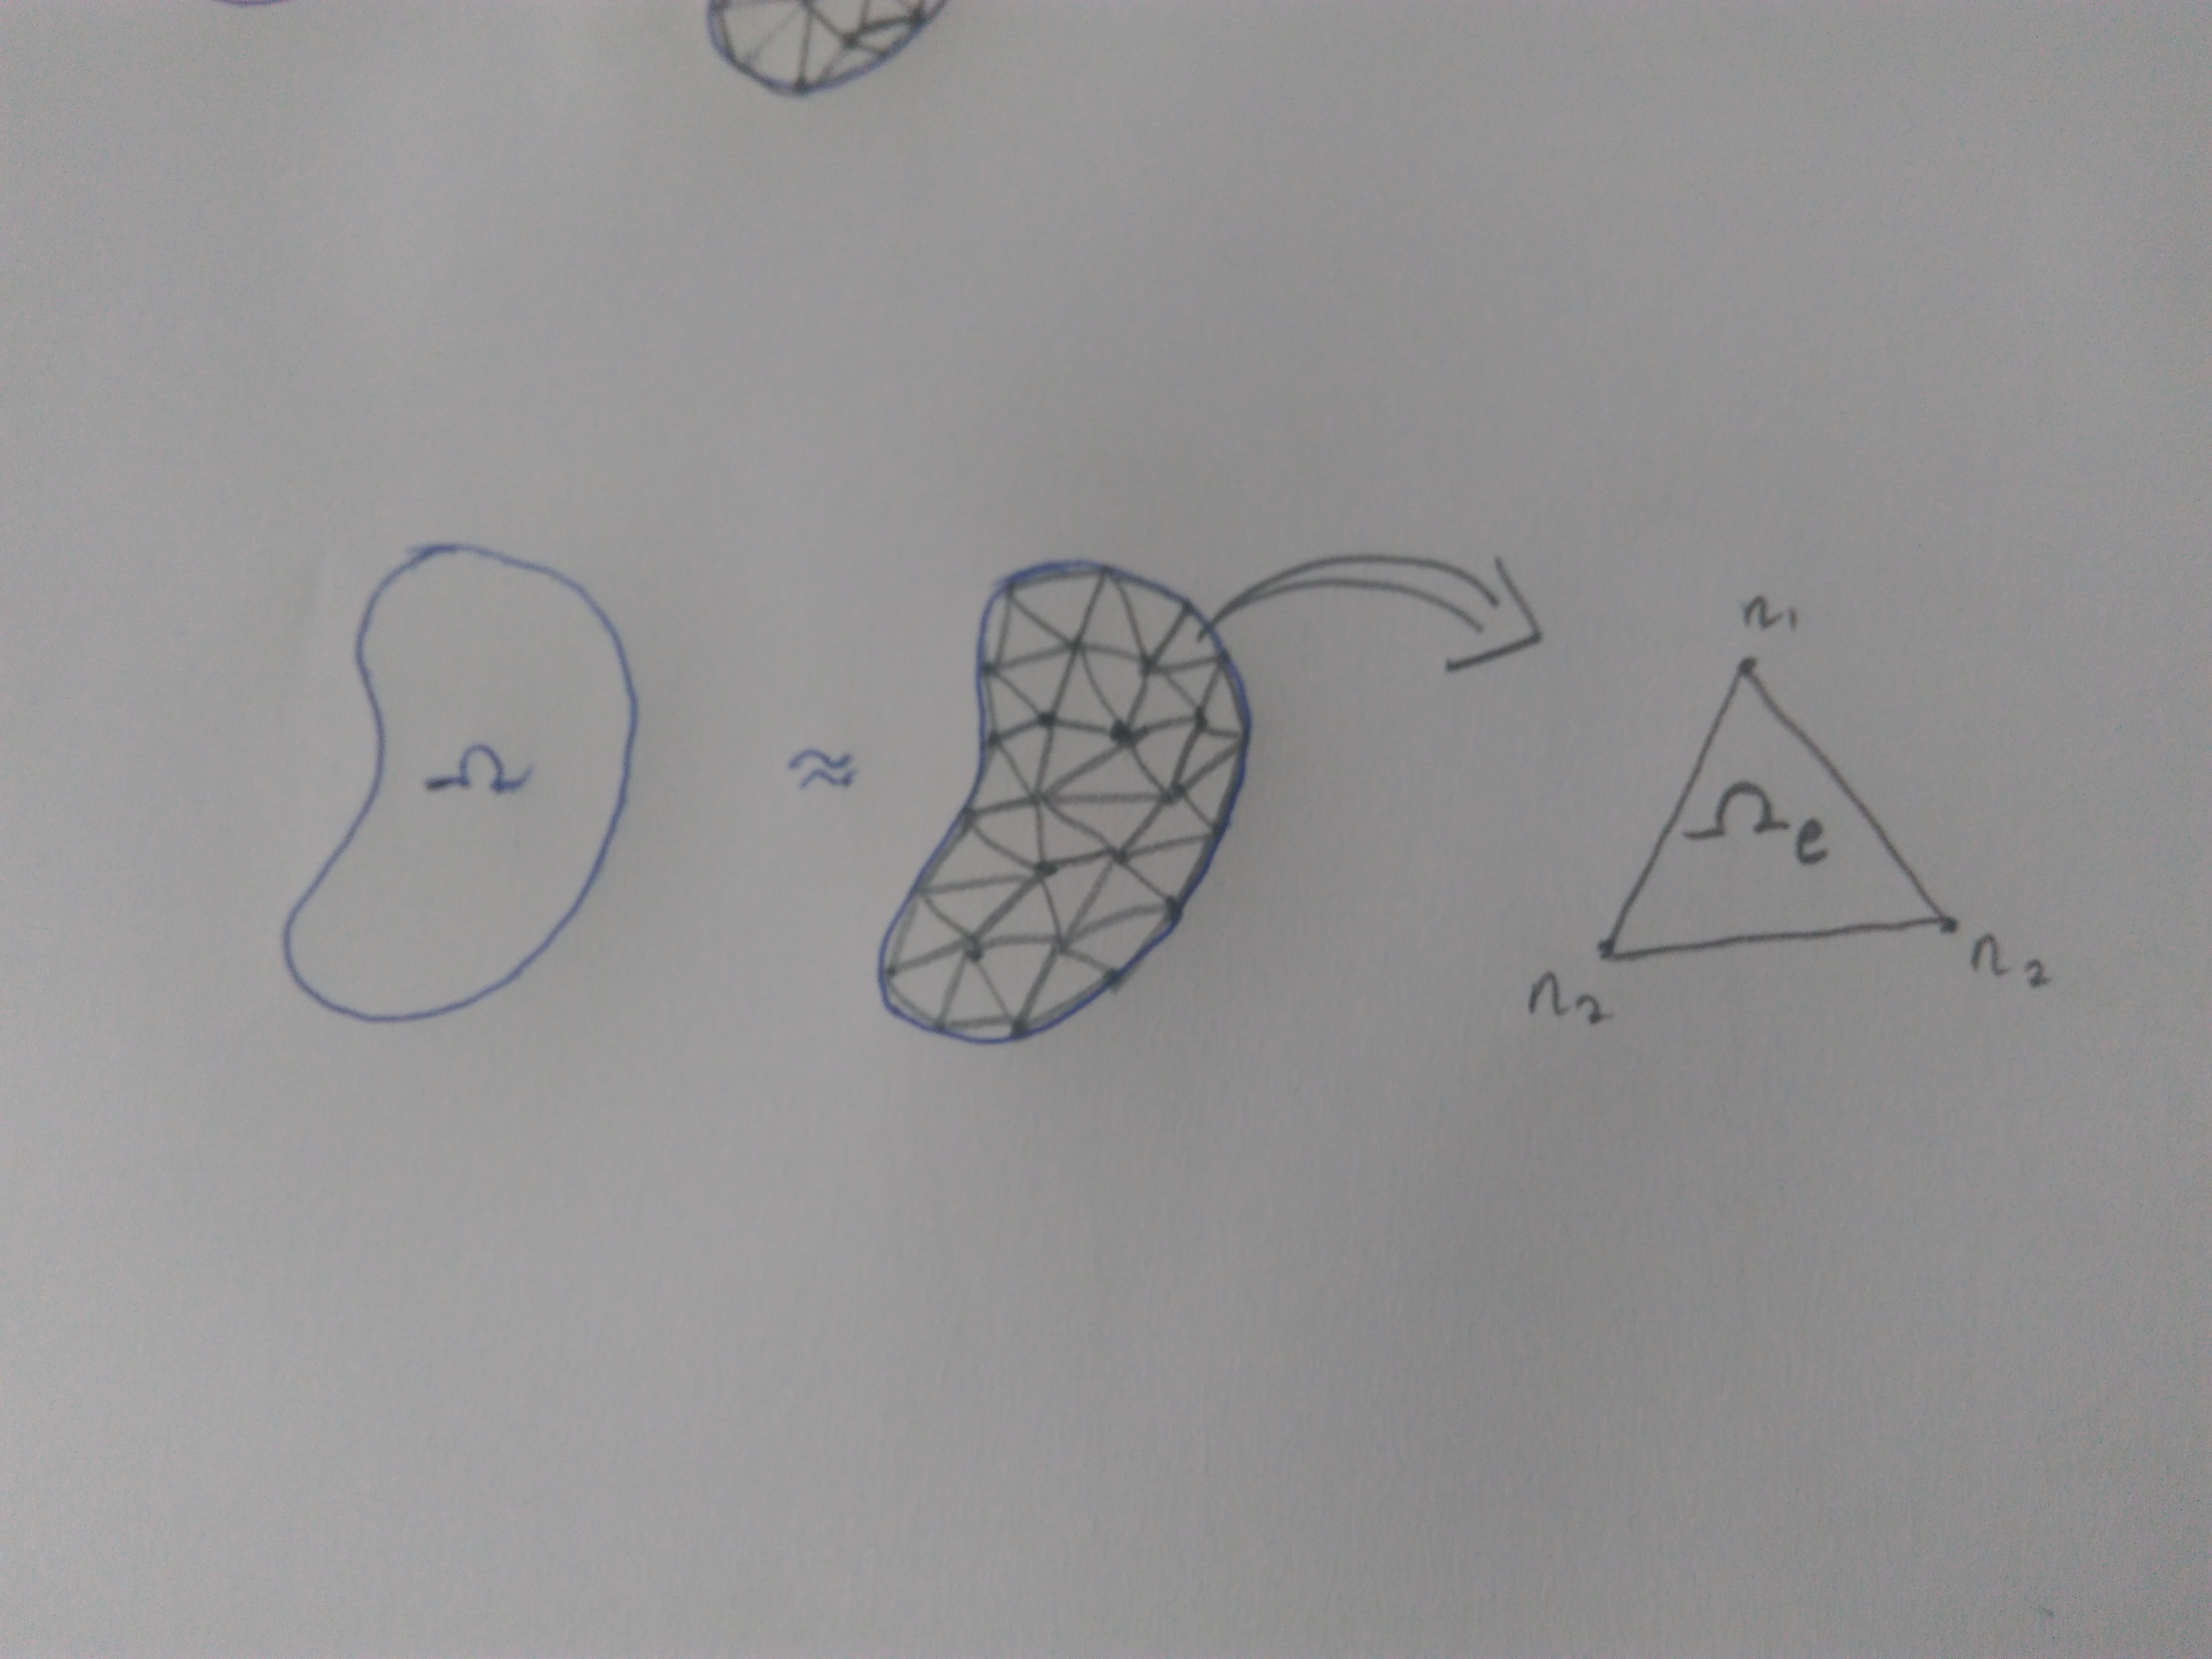 Ω
≈
n₁
Ωₑ
n₂
n₂